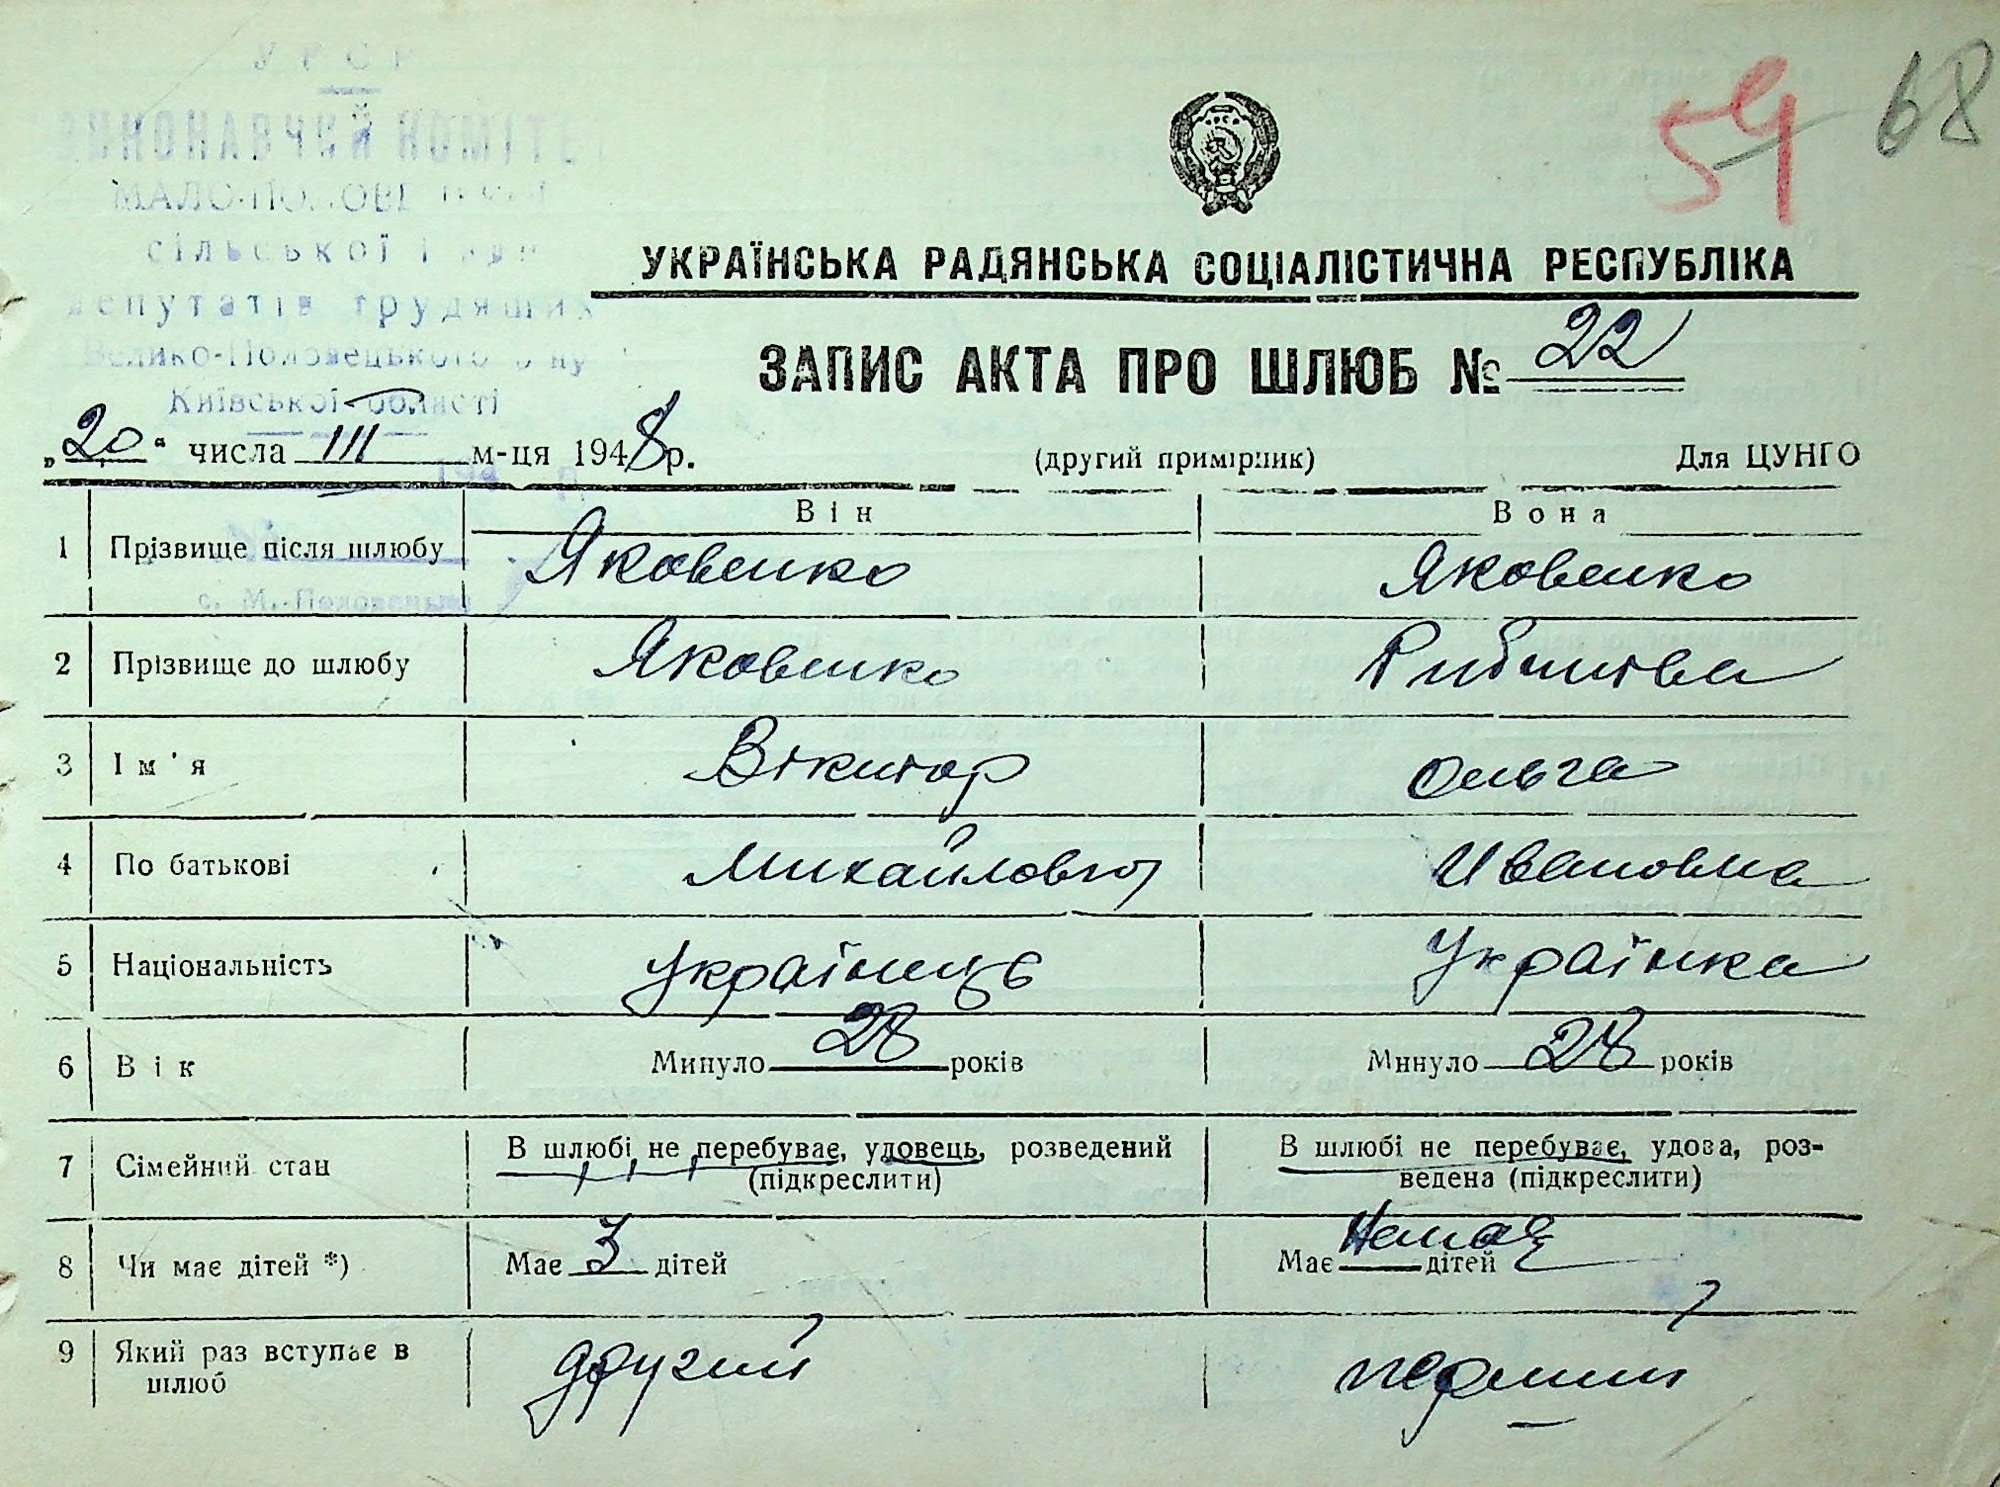 УРСР
ВИКОНАВЧИЙ КОМІТЕТ
МАЛО-ПОЛОВЕЦЬКОЇ
сільської Ради
депутатів трудящих
Велико-Половецького р-ну
Київської області
с. М.-Половецьке
59 68
УКРАЇНСЬКА РАДЯНСЬКА СОЦІАЛІСТИЧНА РЕСПУБЛІКА
ЗАПИС АКТА ПРО ШЛЮБ № 22
„20“ числа III м-ця 1948 р. (другий примірник) Для ЦУНГО
Він Вона
1 Прізвище після шлюбу Яковенко Яковенко
2 Прізвище до шлюбу Яковенко
3 Ім'я Віктор Ольга
4 По батькові Михайлович Ивановна
5 Національність Українець Українка
6 Вік Минуло 28 років Минуло 28 років
7 Сімейний стан В шлюбі не перебуває, удовець, розведений В шлюбі не перебуває, удова, роз-
(підкреслити) ведена (підкреслити)
8 Чи має дітей *) Має 3 дітей Має Немає дітей
9 Який раз вступає в другий перший
шлюб